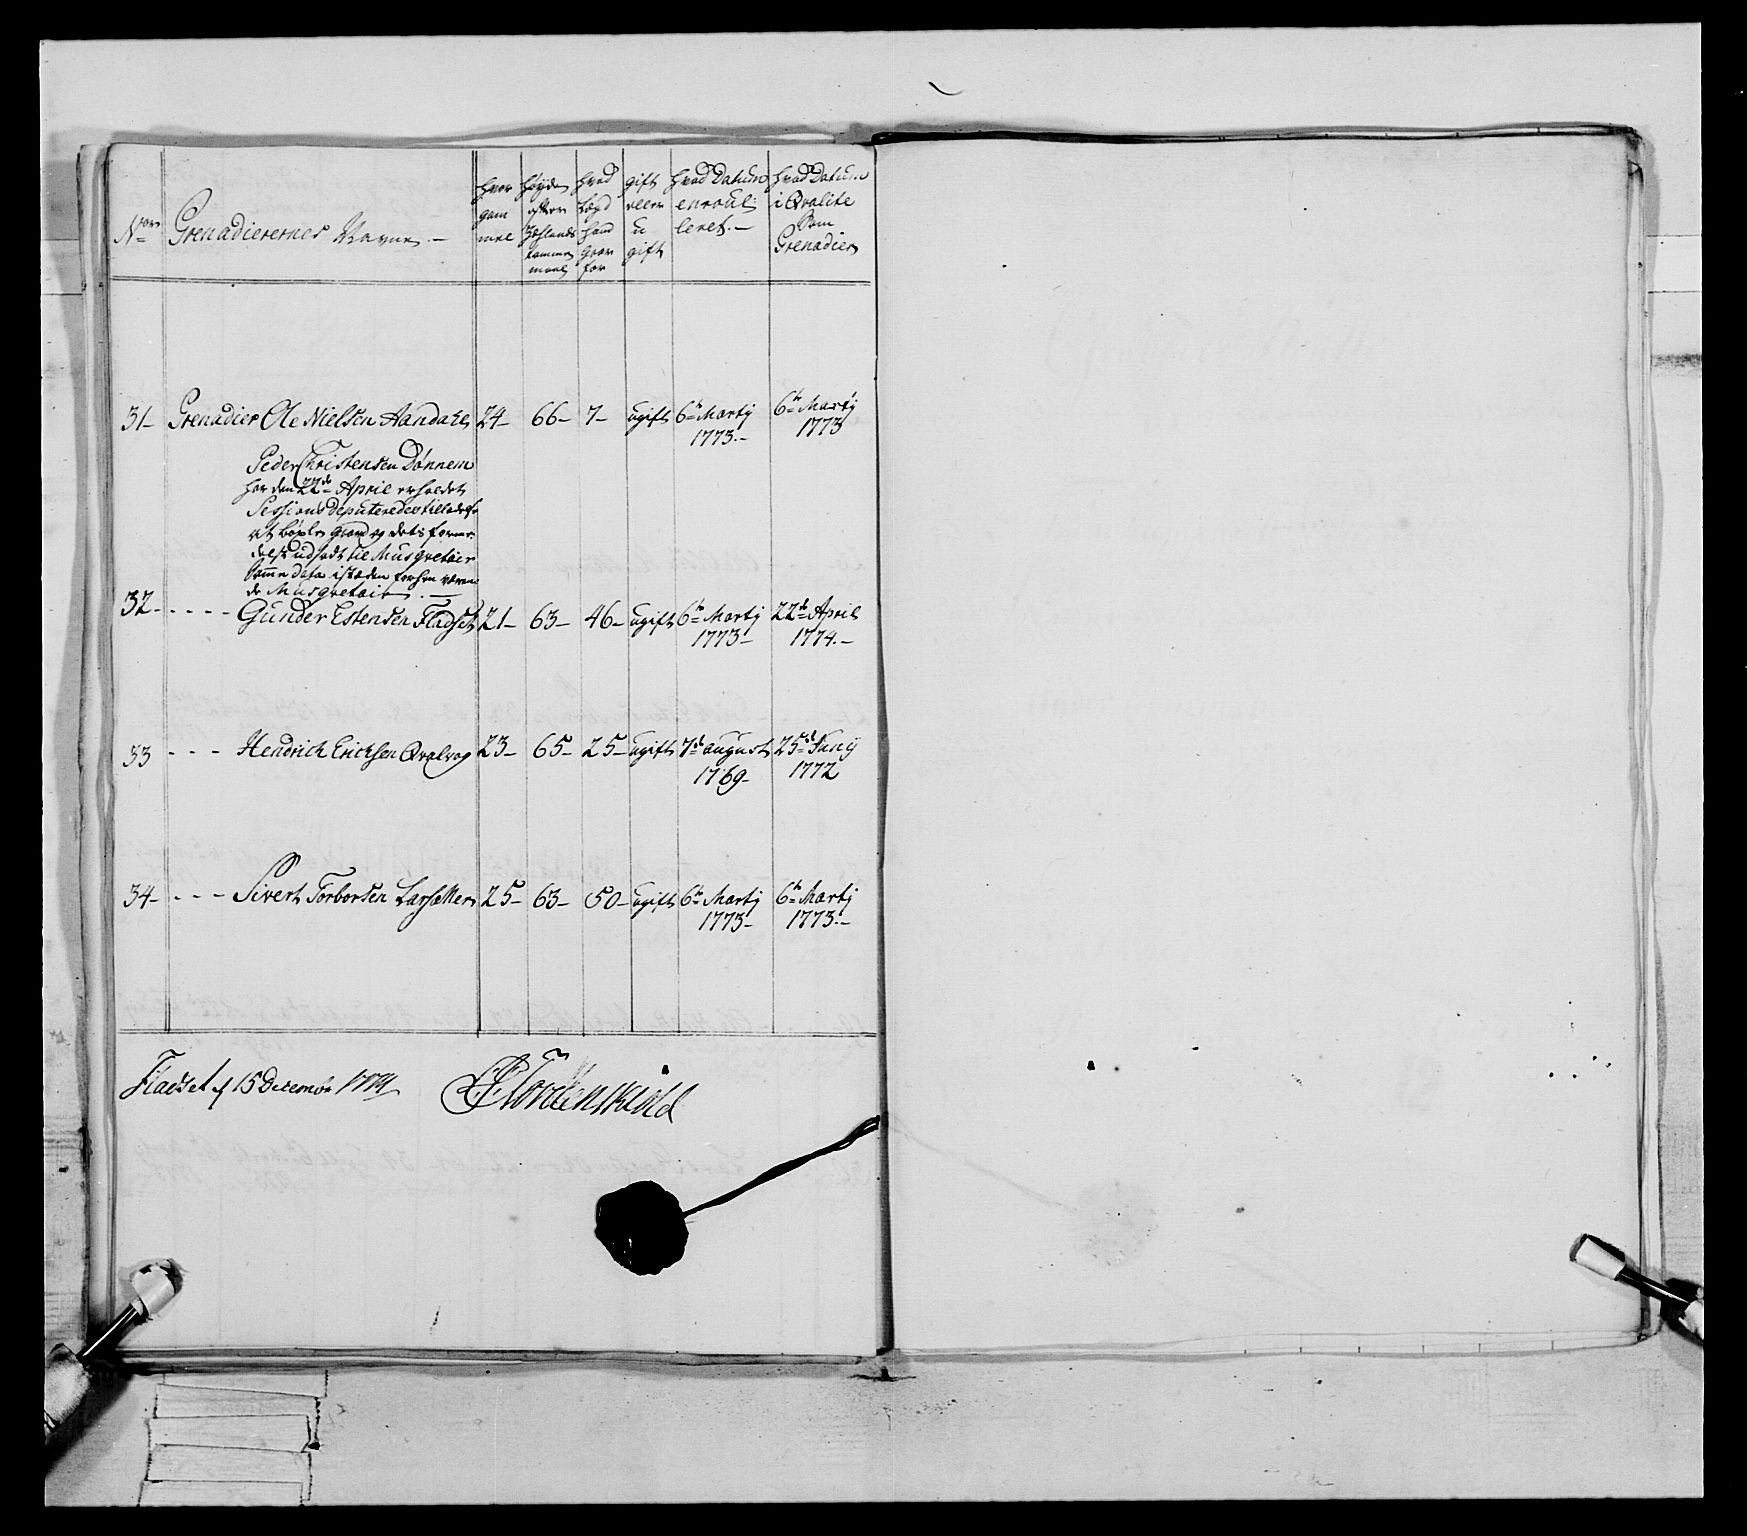 Nor Grenadierernes Navne. — hvor gammel høyde efter Siælands tommemaal hvad Lægd hand gaar for gift eller ugift hvad Datum enroulleret. — hvad Datum i Qvalite Som Grenadier
31 — Grenadier Ole Nielsen Aandahl 24 — 66 — 7 — ugift 6te Martij 1773. — 6te Martij 1773
Peder Christensen Dønnem
har den 22de April erholdet
Sessions deputeredes tilladelse
at
udsadt til Musqveteer
Samme dato i stæden forhen væren-
de Musqveteer. —
32 - - - - - Gunder Estensen Fladset 21 — 63 — 46 — ugift 6te Martij 1773 — 22de April 1774. —
33 - - - Hendrich Ericksen Qvalvog 23 — 65 — 25 — ugift 7de august 1769 — 25de Junij 1772
34 — - - - Sivert Torborsen 25 — 63 — 50 — ugift 6te Martij 1773 — 6te Martij 1773. —
Fladset d 15 Decembr 1774 Tordenskiold